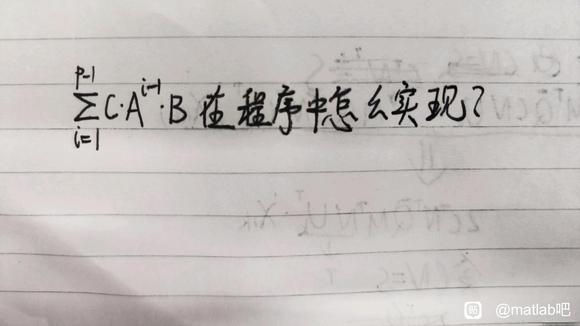 p-1
∑ C·A^{i-1}·B 在程序中怎么实现?
i=1
贴 @matlab吧